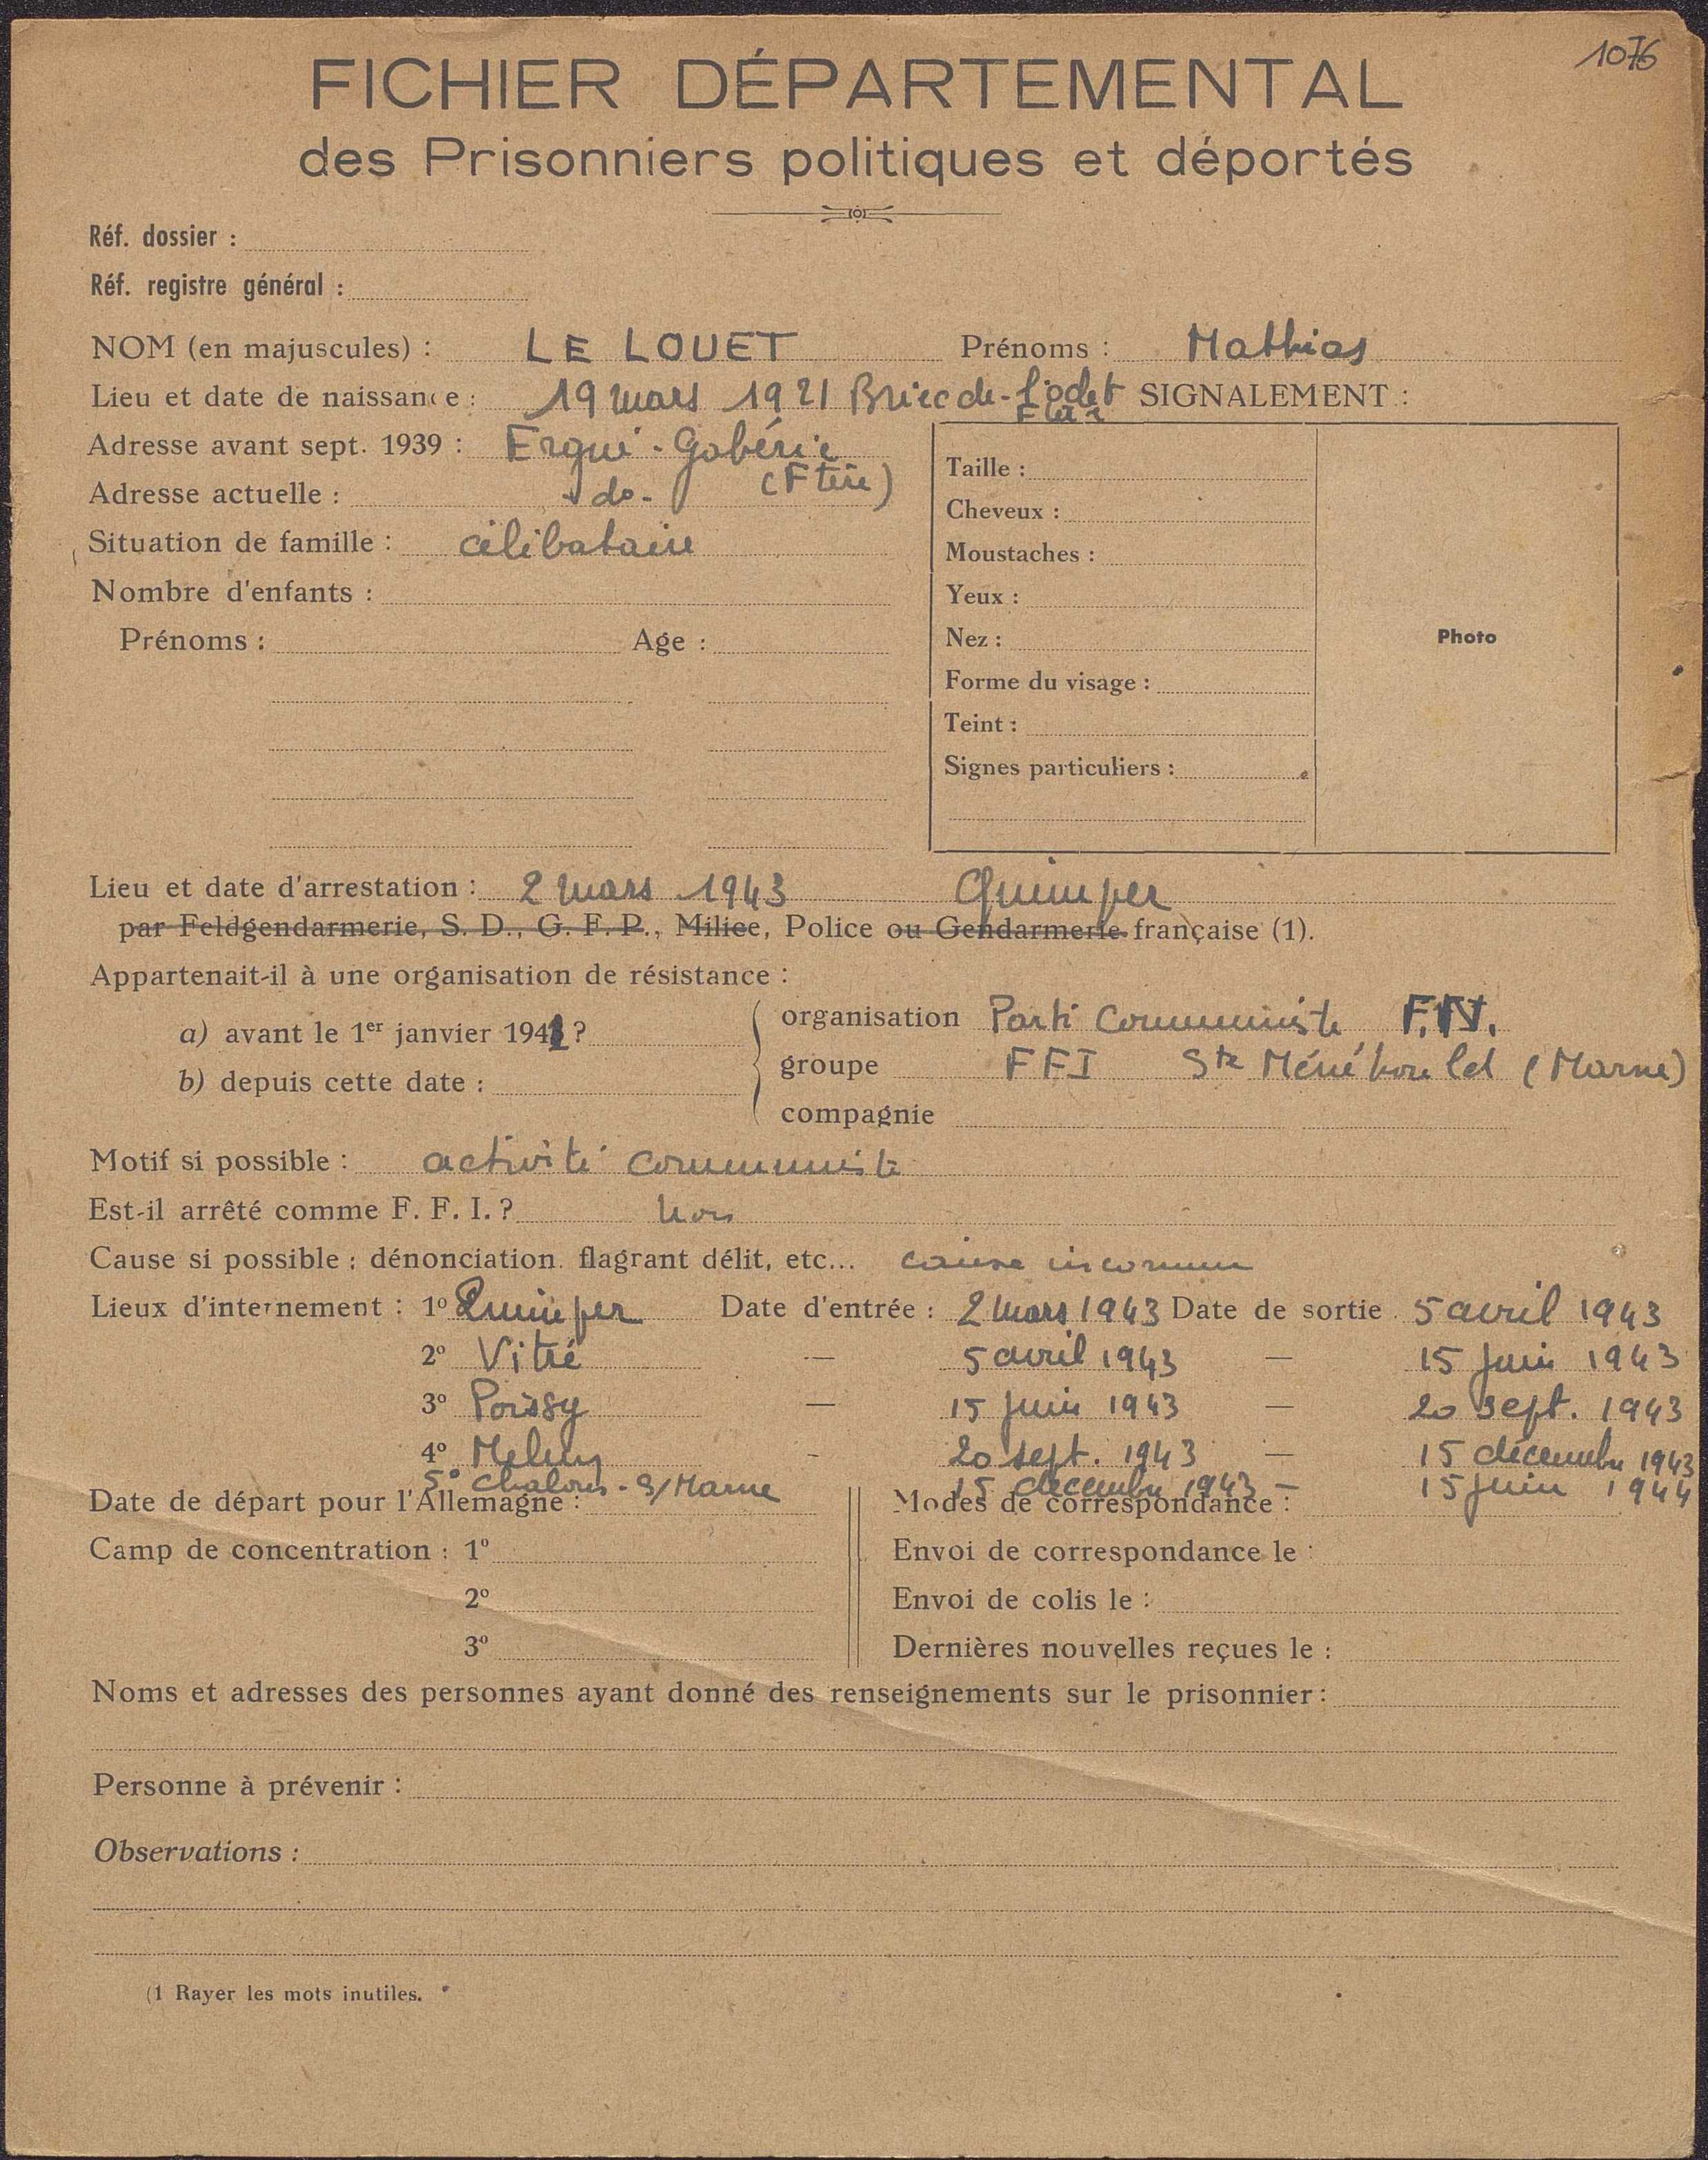 1076
FICHIER DÉPARTEMENTAL
des Prisonniers politiques et déportés
Réf. dossier :
Réf. registre général :
NOM (en majuscules) : LE LOUET Prénoms : Mathias
Lieu et date de naissance : 19 mars 1921 Briec de-l'odet SIGNALEMENT :
Adresse avant sept. 1939 : Ergué-Gabéric
Adresse actuelle : -do- (Ftère)
Situation de famille : célibataire
Nombre d'enfants :
Prénoms : Age :
Taille :
Cheveux :
Moustaches :
Yeux :
Nez :
Forme du visage :
Teint :
Signes particuliers :
Photo
Lieu et date d'arrestation : 2 mars 1943 Quimper
par Feldgendarmerie, S. D., G. F. P., Milice, Police ou Gendarmerie française (1).
Appartenait-il à une organisation de résistance :
a) avant le 1er janvier 1942 ?
b) depuis cette date :
organisation Parti Communiste F.N.
groupe FFI Ste Ménéhould (Marne)
compagnie
Motif si possible : activité communiste
Est-il arrêté comme F. F. I. ? non
Cause si possible : dénonciation. flagrant délit, etc... cause inconnue
Lieux d'internement : 1° Quimper Date d'entrée : 2 mars 1943 Date de sortie 5 avril 1943
2° Vitré — 5 avril 1943 — 15 juin 1943
3° Poissy — 15 juin 1943 — 20 sept. 1943
4° Melun - 20 sept. 1943 — 15 décembre 1943
5° Chalons-s/Marne 15 décembre 1943 - 15 juin 1944
Date de départ pour l'Allemagne :
Camp de concentration : 1°
2°
3°
Modes de correspondance :
Envoi de correspondance le :
Envoi de colis le :
Dernières nouvelles reçues le :
Noms et adresses des personnes ayant donné des renseignements sur le prisonnier :
Personne à prévenir :
Observations :
(1 Rayer les mots inutiles.